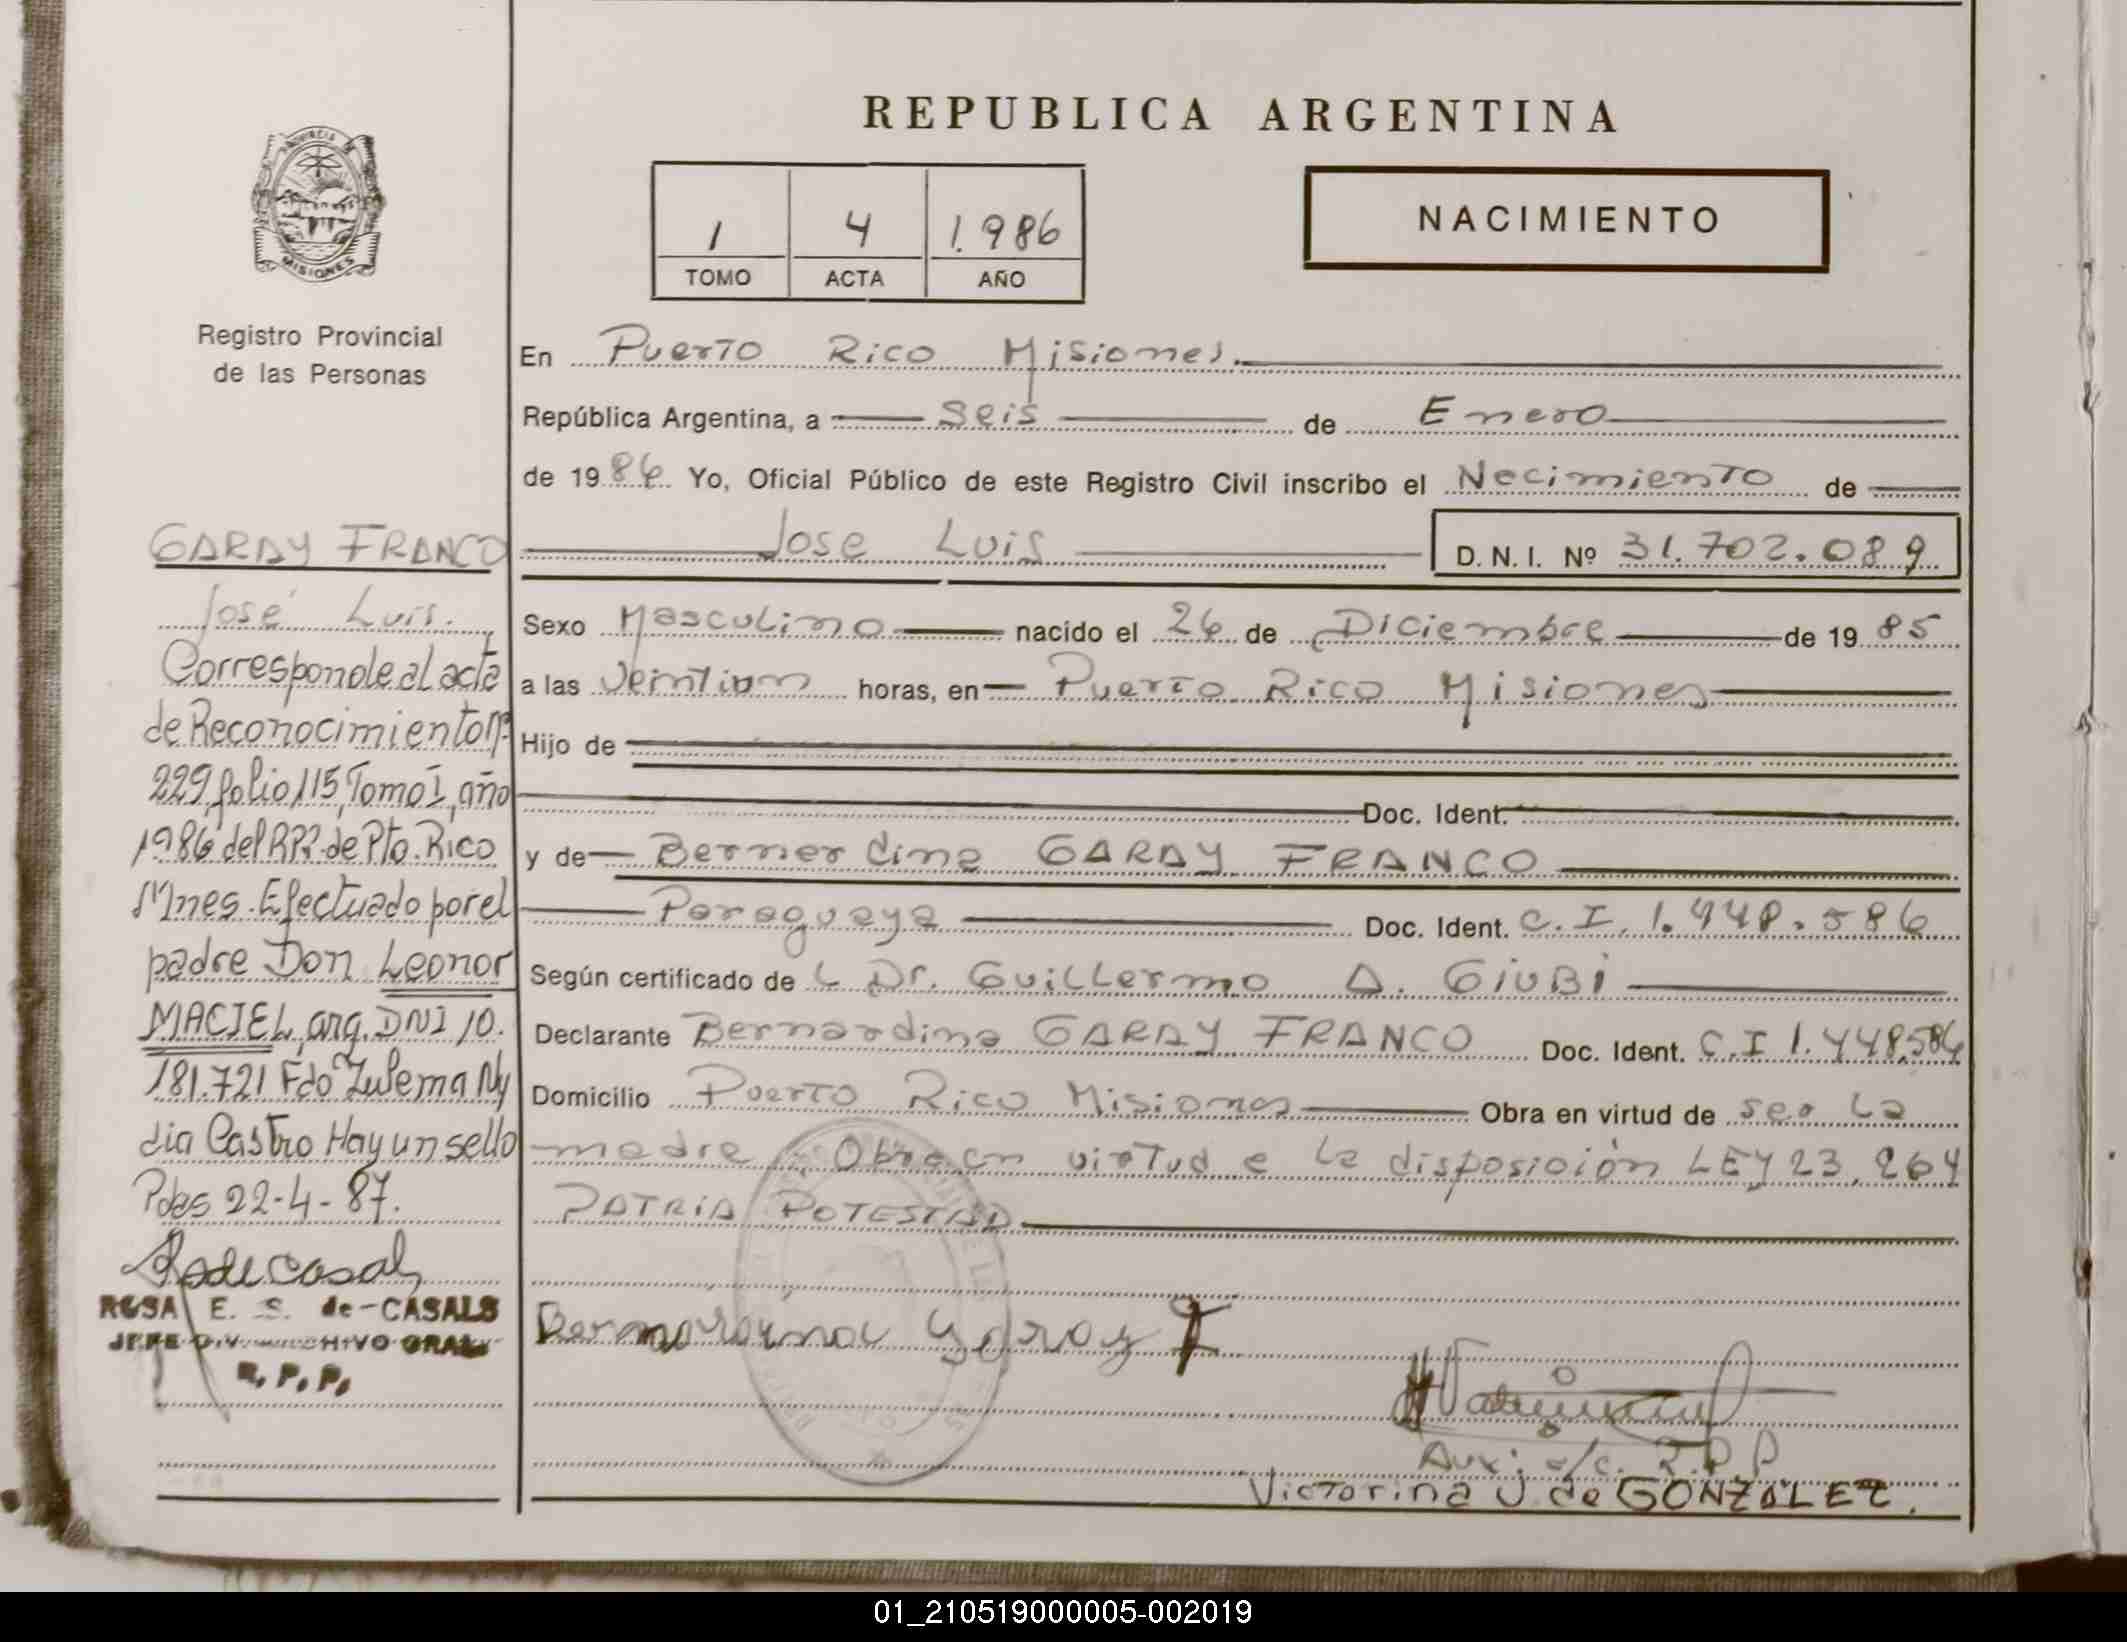 REPUBLICA ARGENTINA
PROVINCIA
MISIONES
Registro Provincial
de las Personas
1 4 1.986
TOMO ACTA AÑO
NACIMIENTO
En Puerto Rico Misiones.
República Argentina, a Seis de Enero
de 1986 Yo, Oficial Público de este Registro Civil inscribo el Necimiento de
Jose Luis D. N. I. Nº 31.702.089
Sexo Masculino nacido el 26 de Diciembre de 19 85
a las Veintiun horas, en Puerto Rico Misiones
Hijo de
Doc. Ident.
y de Bernerdina GARAY FRANCO
Paraguaya Doc. Ident. C. I. 1.448.586
Según certificado de L Dr. Guillermo A. GiUBi
Declarante Bernardina GARAY FRANCO Doc. Ident. C.I 1.448.586
Domicilio Puerto Rico Misiones Obra en virtud de ser La
madre. Obra en virtud e la disposición LEY 23.264
PATRIA POTESTAD
Bernardina Garay F
Aux. e/c. R.P.P
Victorina J. de GONZALEZ.
GARAY FRANCO
José Luis.
Corresponde al acta
de Reconocimiento Nº
229, folio 115, Tomo I, año
1986 del RPP. de Pto. Rico
Mnes. Efectuado por el
padre Don Leonor
MACIEL, arg. DNI 10.
181.721 Fdo Zulema Ny
dia Castro Hay un sello
Pdas 22-4-87.
R de Casals
ROSA E. S. de-CASALS
JEFE DIV. ARCHIVO GRAL
R. P. P.
01_210519000005-002019